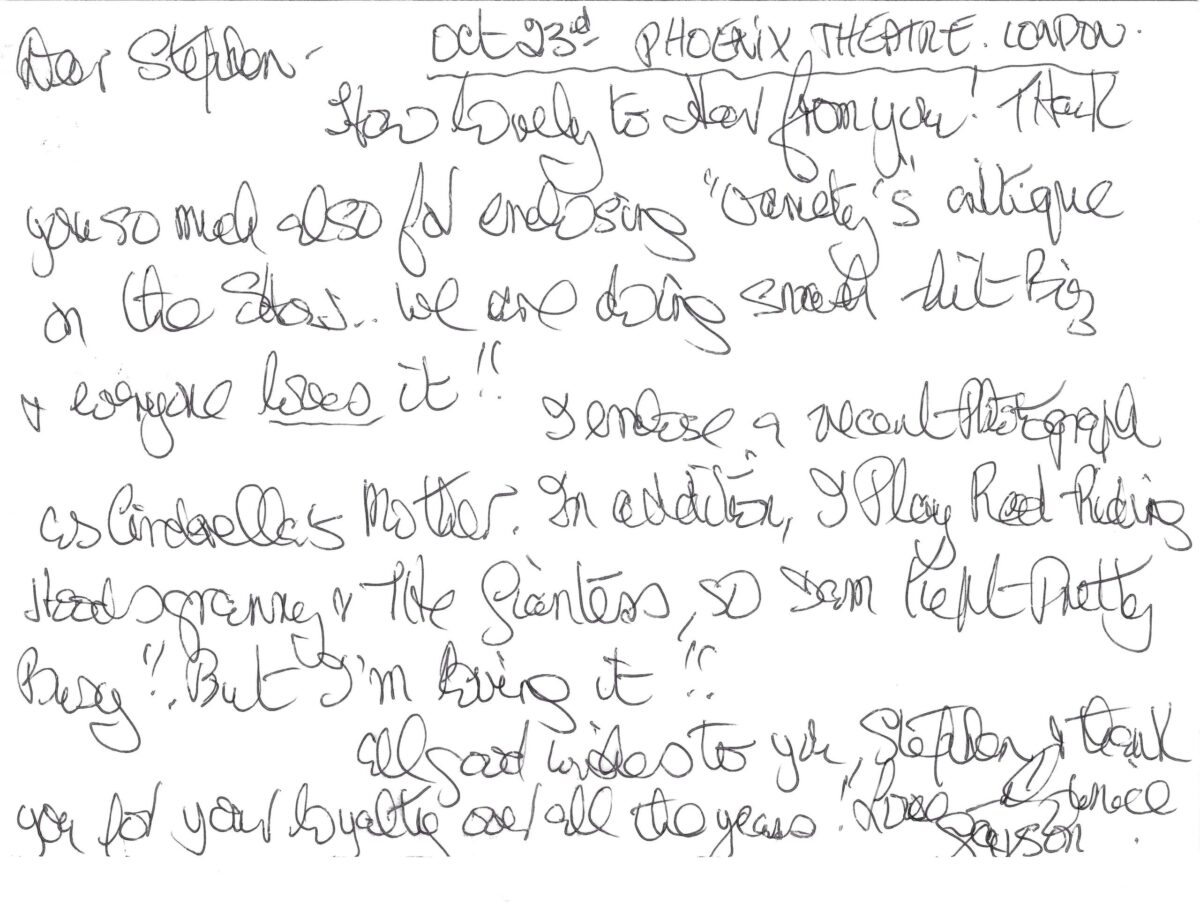 Oct 23rd PHOENIX THEATRE. LONDON.
Dear Stephen -
How lovely to Hear from you! Thank
you so much also for enclosing "Variety's" critique
on the Show.. We are doing small hit Biz
& everyone loves it!!
I enclose a recent Photograph
as Cinderella's Mother. In addition, I Play Red Riding
Hoods granny & THe Giantess, so Iam Kept Pretty
Busy!! But I'm loving it!!
All good wishes to you, Stephen, & thank
you for your loyalty over all the years! Love